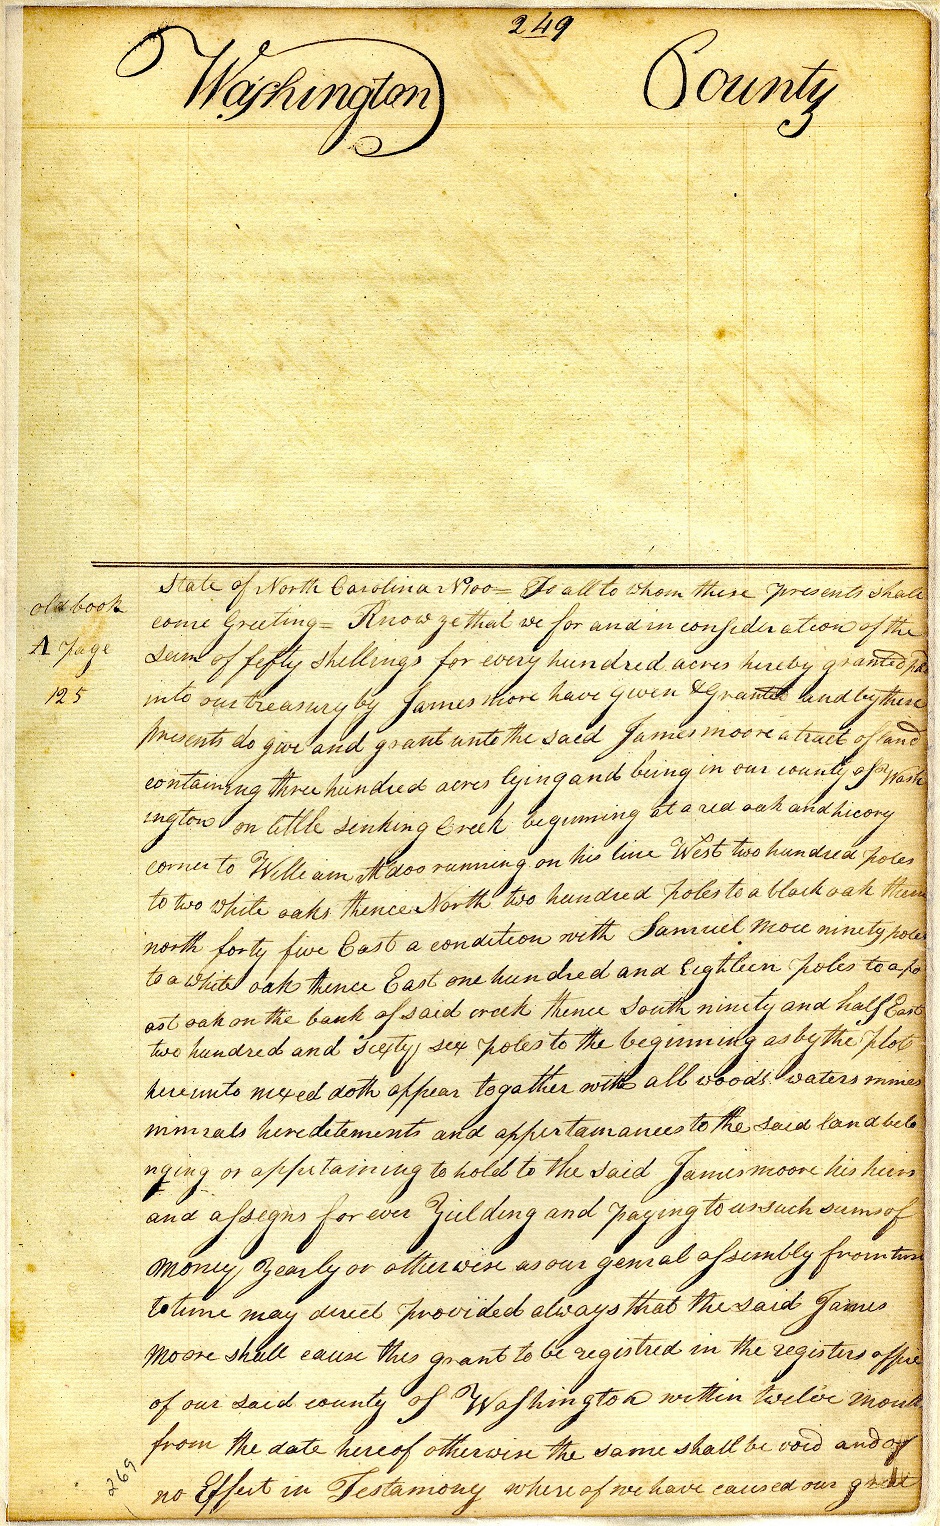 249
Washington County
old book
A Page
125
State of North Carolina No 100 = To all to whom these presents shall
come Greeting = Know ye that we for and in consideration of the
Sum of fefty shellings for every hundred acres hereby granted pd
into our treasury by James more have given & Granted and by these
presents do give and grant unto the said James moore a tract of land
containing three hundred acres lying and being in our county of Wash
ington on little senking Creek beginning at a red oak and hicory
corner to William Adoo running on his line West two hundred poles
to two white oaks thence North two hundred poles to a black oak thence
north forty five East a condition with Samuel More ninety poles
to a white oak thence East one hundred and Eighteen poles to a po
ast oak on the bank of said creek thence South ninety and half East
two hundred and sixty sex poles to the beginning as by the plot
hereunto nexed doth appear togather with all woods waters mines
minrals heredetements and appertainances to the said land belo
nging or appertaining to hold to the said James moore his heirs
and assegns for ever Yielding and paying to us such sums of
money yearly or otherwise as our genral assembly from time
to time may direct provided always that the said James
Moore shall cause this grant to be registred in the registers office
of our said county of Washington within twelve months
from the date hereof otherwise the same shall be void and of
no Effect in Testamony where of we have caused our great
269